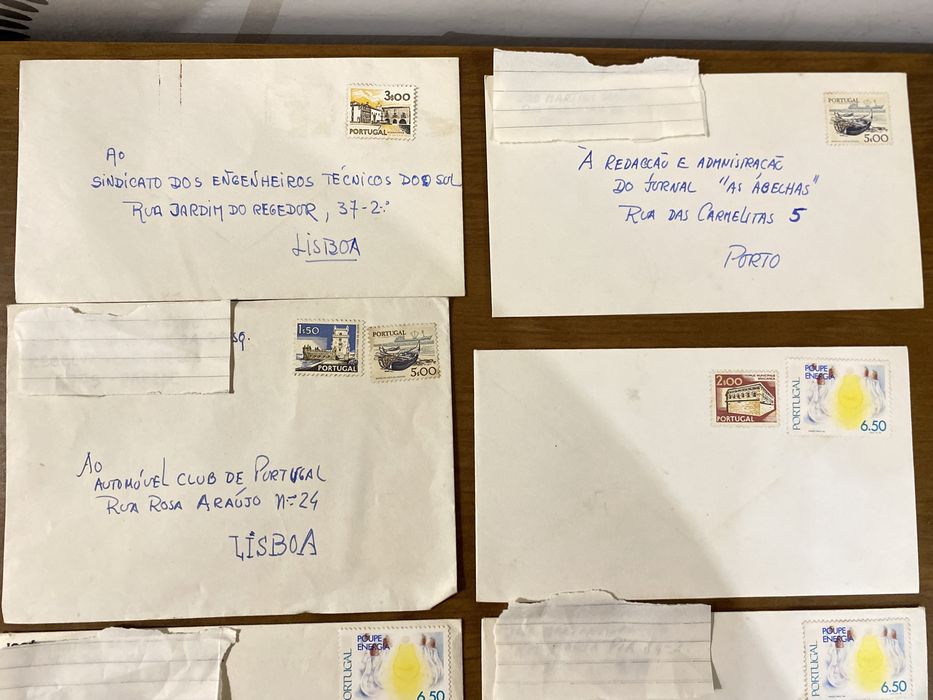 3$00
PORTUGAL
Ao
SINDICATO DOS ENGENHEIROS TÉCNICOS DO SUL
RUA JARDIM DO REGEDOR, 37-2.º
LISBOA
PORTUGAL
5$00
À REDACÇÃO E ADMNISTRAÇÃO
DO JORNAL "AS ABELHAS"
RUA DAS CARMELITAS 5
PORTO
sq.
1$50
PORTUGAL
PORTUGAL
5$00
Ao
AUTOMÓVEL CLUB DE PORTUGAL
RUA ROSA ARAÚJO Nº 24
LISBOA
2$00
PORTUGAL
POUPE
ENERGIA
6.50
PORTUGAL
POUPE
ENERGIA
6.50
PORTUGAL
POUPE
ENERGIA
6.50